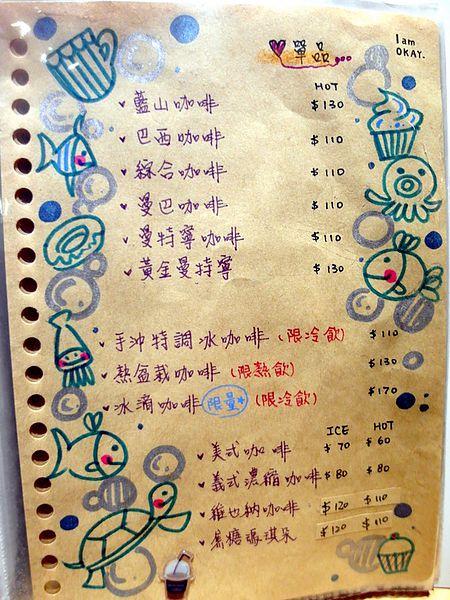 I am
OKAY.
單品
HOT
藍山咖啡 $130
巴西咖啡 $110
綜合咖啡 $110
曼巴咖啡 $110
曼特寧咖啡 $110
黃金曼特寧 $130
手沖特調冰咖啡 (限冷飲) $110
熱盆栽咖啡 (限熱飲) $130
冰滴咖啡 限量* (限冷飲) $170
ICE HOT
美式咖啡 $70 $60
義式濃縮咖啡 $80 $80
維也納咖啡 $120 $110
焦糖瑪琪朵 $120 $110